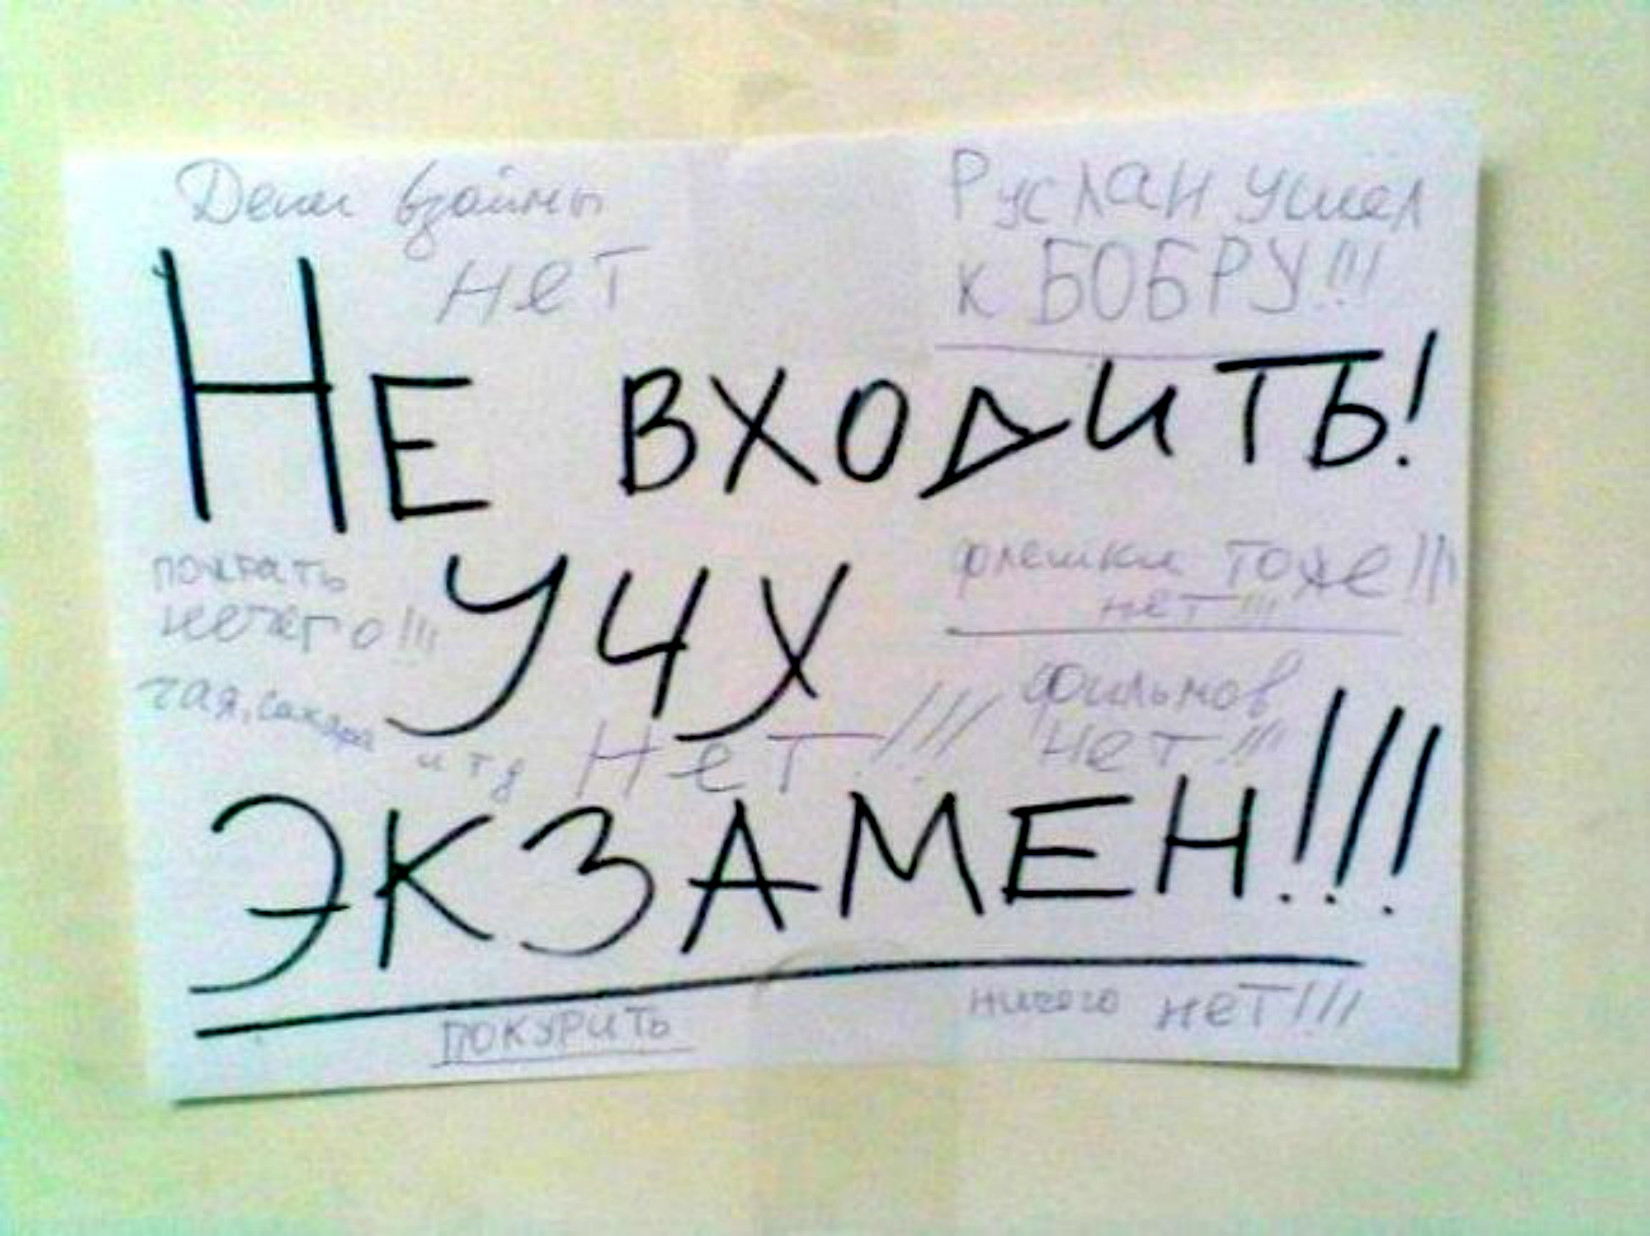 взаймы
нет
Руслан ушёл
к БОБРУ!!!
НЕ ВХОДИТЬ!
пожрать
нечего!!!
УЧУ
флешки тоже!!!
нет!!!
чая, сахара и тд Нет!!!
фильмов
нет!!!
ЭКЗАМЕН!!!
ПОКУРИТЬ
ничего нет!!!